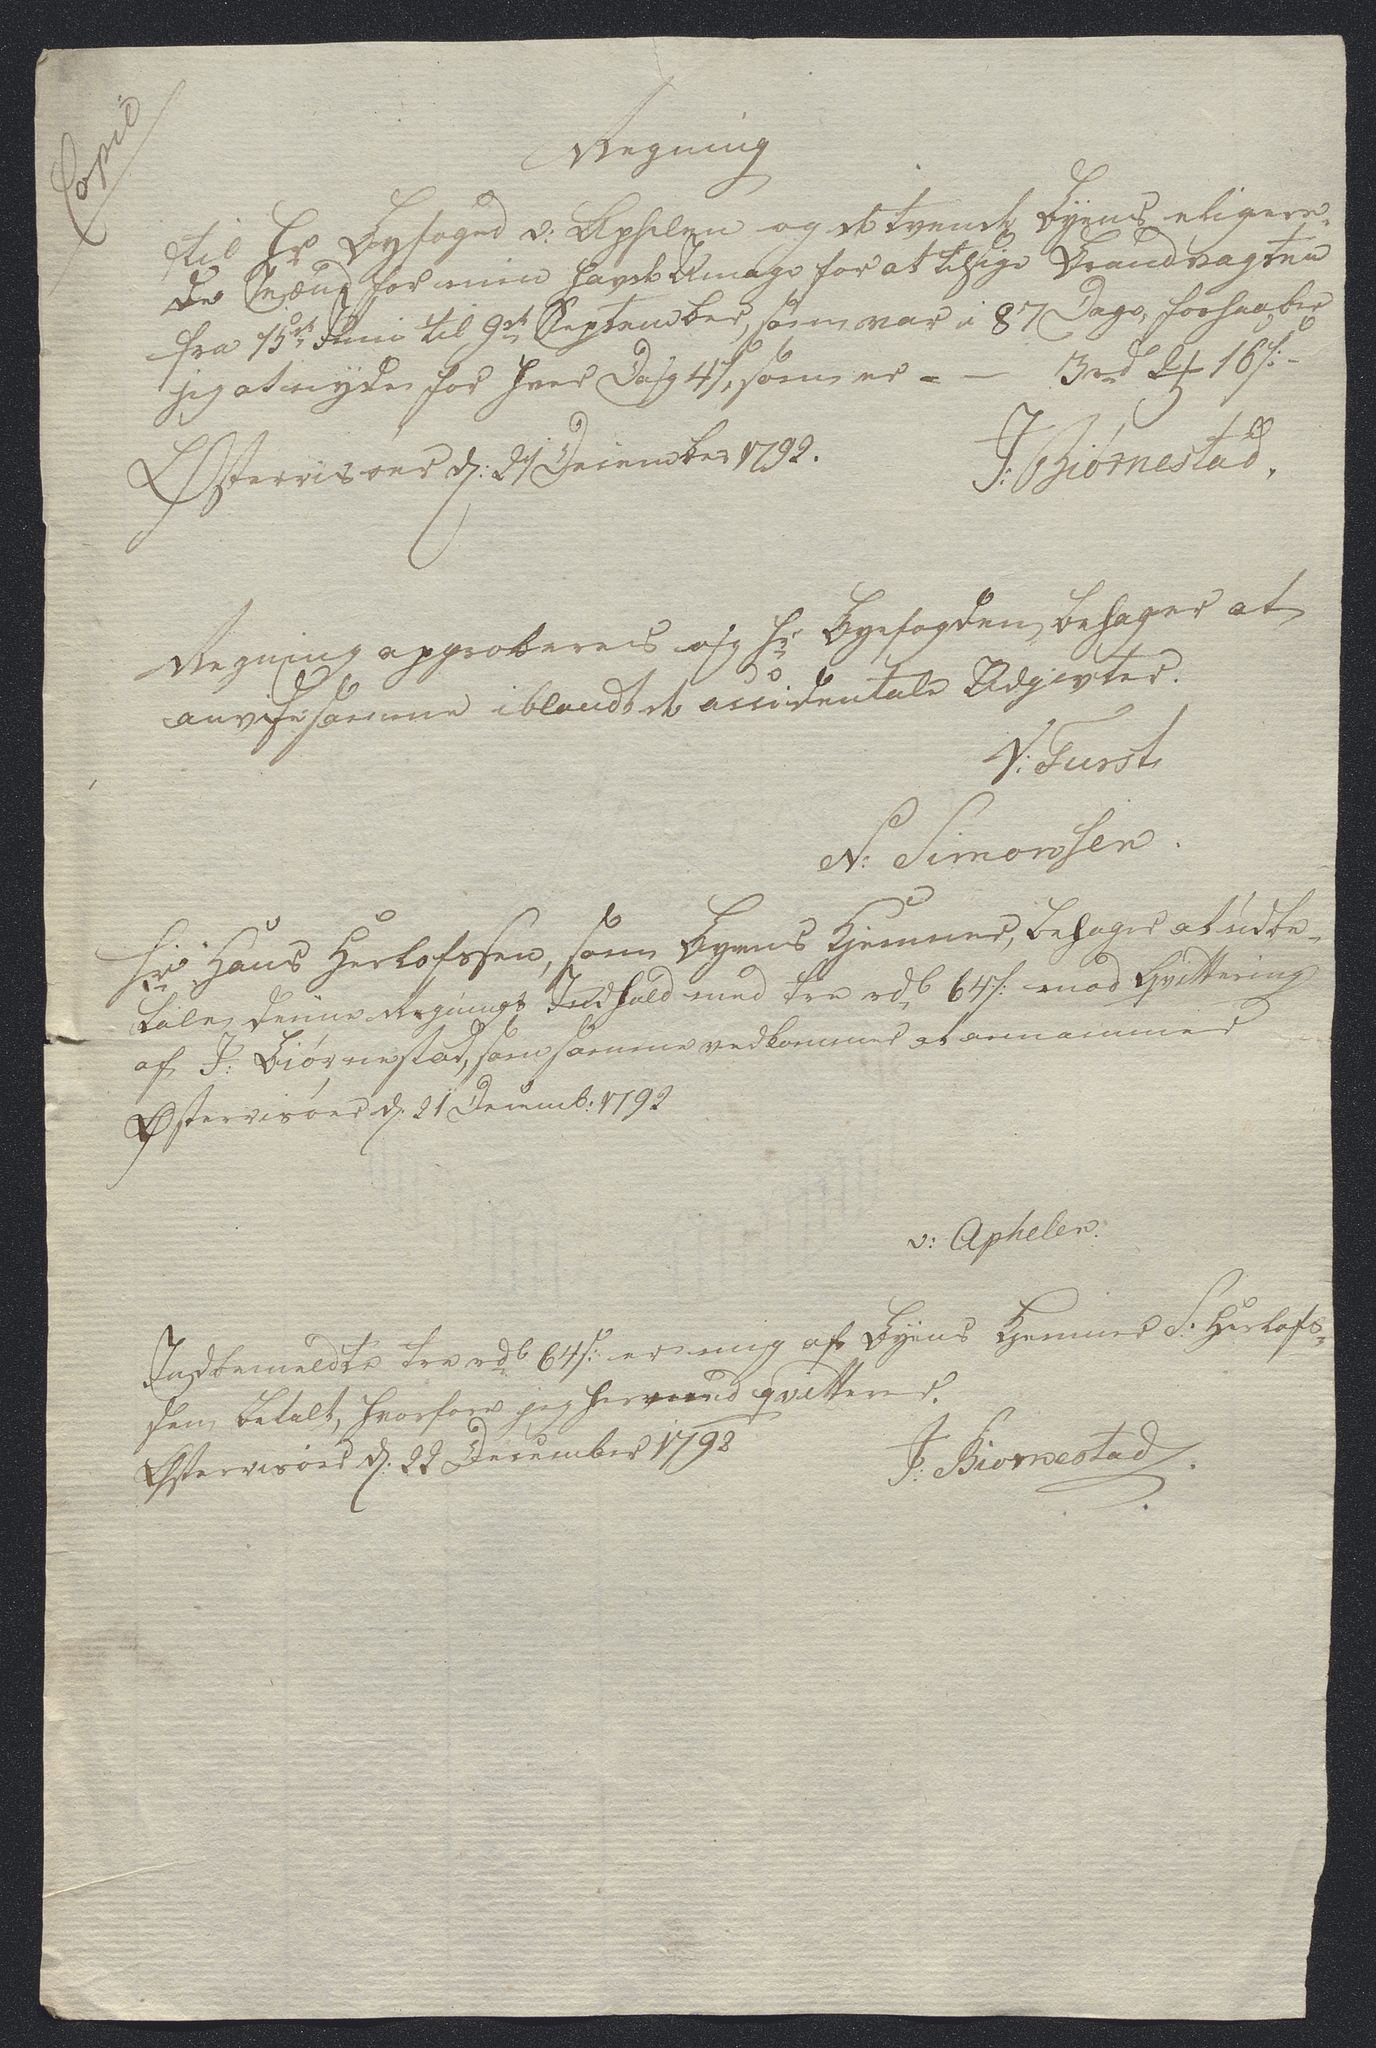 Copie
Regning
til Hr Byfoged v: Aphelen og de tvende Byens eligere-
de Mænd for min havde Umage for at tilsige Brandvagten
fra 15de Juni til 9de September, som var i 87 Dage, forhaaber
jeg at nyde for hver Dag 4 s, som er - - 3 rd 2 16 s: -
Østerrisøer d: 21 December 1792.
J: Biørnestad.
Regning approberes og Hr Byefogden behager at
anvise samme iblandt de accidentale Udgivter.
N: Furst
N: Simonsen.
Hr Hans Herlofssen, som Byens Kjemner, behager at udbe-
tale denne Regnings Indhold med tre rdb 64 s: mod Qvittering
af J: Biørnestad, som samme vedkommer at annammes
Østerrisøer d: 21 Decemb: 1792
v: Aphelen.
Indbemeldte tre rdb 64 s: er mig af Byens Kjemner S: Herlofs-
sen betalt, hvorfore jeg herved qvitterer.
Østerrisøer d: 22 December 1792
J: Biornestad.